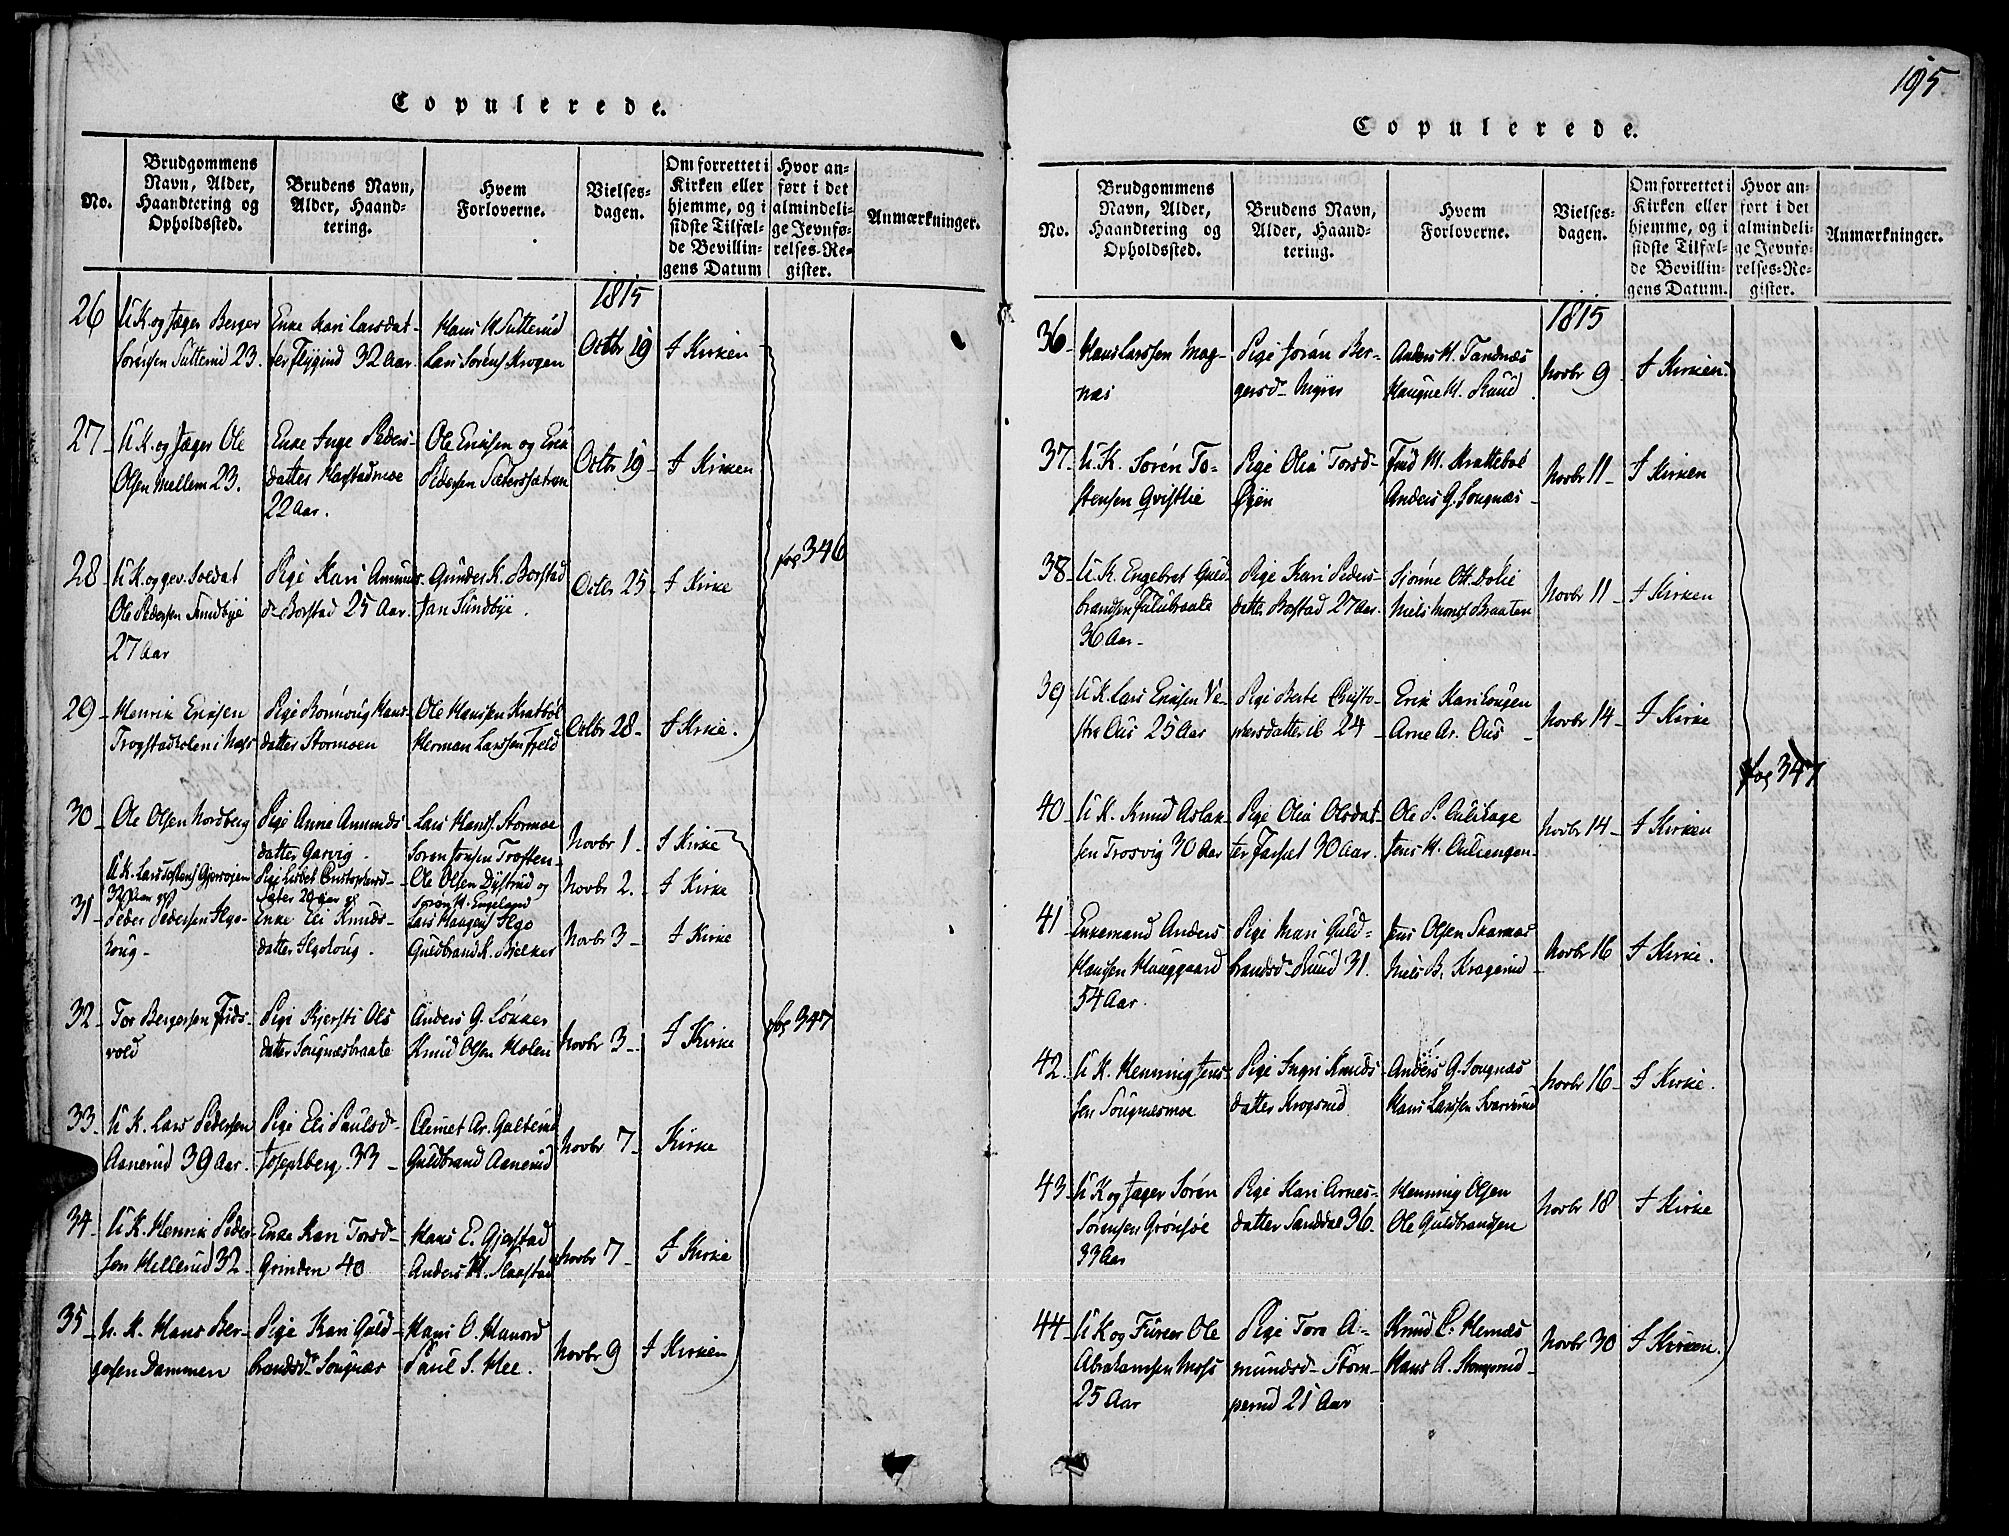 Copulerede.
No.
Brudgommens
Navn, Alder,
Haandtering og
Opholdssted.
Brudens Navn,
Alder, Haand-
tering.
Hvem
Forloverne.
Vielses-
dagen.
Om forrettet i
Kirken eller
hjemme, og i
sidste Tilfæl-
de Bevillin-
gens Datum
Hvor an-
ført i det
almindeli-
ge Jevnfø-
relses-Re-
gister.
Anmærkninger.
1815
26
U K. og Jæger Berger
Sørensen Sutterud 23.
Enke Kari Larsdat-
ter Flygind 32 Aar
Hans H. Sutterud
Lars Sørens. Krogen
Octbr 19
I Kirken
27
U K. og Jæger Ole
Olsen Mellem 23.
Enke Inge Peders-
datter Hagstadmoe
22 Aar.
Ole Eriksen og Erik
Pedersen Sæterssætren
Octbr 19
I Kirken
fog 346
28
U K. og gev. Soldat
Ole Pedersen Sundbye
27 Aar
Pige Kari Amunds
dr. Borstad 25 Aar.
Gunder K. Borstad
Jan Sundbye.
Octbr 25
I Kirke
29
Henrik Eriksen
Trogstadholen i Næs
Pige Rønnoug Hans-
datter Stormoen
Ole Hansen Kratbøl
Herman Larssen Fjeld
Octbr 28
I Kirke.
30
Ole Olsen Nordberg
Pige Anne Amunds
datter Garvig
Lars Hans. Stormoe
Soren Jonsen Trosten
Novbr 1
I Kirke
U K. Lars Tostens. Gjersøjen
32 Aar gl
Pige Lisbet Christophersd-
datter 20 Aar gl
Ole Olsen Dystrud og
Soren H. Engelund
Novbr 2.
I Kirke
31
Peder Pedersen Algo-
houg
Enke Eli Knuds-
datter Algohoug.
Lars Haagens. Algo
Guldbrand K. Bielker
Novbr 3
I Kirke
32
Tor Bergersen Frids-
vold
Pige Kjersti Ols
datter Sougnæsbraate
Anders G. Løkker
Knud Olsen Molen
Novbr 3
I Kirke
fog 347
33
U K. Lars Pedersen
Aanerud 39 Aar.
Pige Eli Paulsd
Josephberg 33
Clemet Ar. Galterud
Guldbrand Aanerud
Novbr 7
Kirke
34
U K. Henrik Peder
sen Hellerud 32
Enke Kari Torsd
Grinden 40
Hans E. Gjerstad
Anders H. Slaastad
Novbr 7
I Kirke
35
U. K. Hans Ber-
gersen Dammen
Pige Kari Guld
brandsdr Sougnæs
Hans O. Hanerd
Paul S. Mee.
Novbr 9
I Kirken
195
Copulerede.
No.
Brudgommens
Navn, Alder,
Haandtering og
Opholdssted.
Brudens Navn,
Alder, Haand-
tering.
Hvem
Forloverne.
Vielses-
dagen.
Om forrettet i
Kirken eller
hjemme, og i
sidste Tilfæl-
de Bevillin-
gens Datum.
Hvor an-
ført i det
almindeli-
ge Jevnfø-
relses-Re-
gister.
Anmærkninger.
1815
36
Hans Larssen Mag-
næs
Pige Joran Ber-
gersdr Myrer
Anders H. Tandnæs
Haagne M. Ruud
Novbr 9
I Kirken.
37
U K. Sørén To-
stensen Qvistlie
Pige Olia Torsd
Øyen
Frid M. Krattebøl
Anders G. Sougnæs
Novbr 11
I Kirken
38
U K. Engebret Guld
brandsen Fulubraate
36 Aar
Pige Kari Peders-
datter Borstad 27 Aar.
Sjonne Ott. Dolie
Niels Mons. Braaten
Novbr 11
I Kirken
39
U K. Lars Eriksen Ve-
stre Ous 25 Aar
Pige Berte Christo-
phersdatter ib 24
Erik Hari Lougen
Arne Ar. Ous
Novbr 14
I Kirke
fog 347
40
U K. Knud Aslak-
sen Trosvig 30 Aar
Pige Olia Olsdat-
ter Farsæt 30 Aar.
Ole P. Aulihage
Jens H. Auliengen
Novbr 14
I Kirken
41
Enkemand Anders
Hansen Hauggaard
54 Aar.
Pige Mari Guld-
brandsd. Ruud 31.
Jens Olsen Skarnæs
Niels B. Kragerud
Novbr 16
I Kirke.
42
U K. Henning Jens-
sen Sougnæsmoe
Pige Ingri Knuds
datter Krogsrud
Anders G. Sougnæs
Hans Larssen Svarverud
Novbr 16
I Kirke.
43
U K og Jæger Sorén
Sørensen Grønsøe
33 Aar
Pige Kari Arnes-
datter Sanddal 36
Henning Olsen
Ole Guldbrandsen
Novbr 18
I Kirke
44
U K og Fureer Ole
Abrahamsen Moss
25 Aar
Pige Tore A-
mundsd Stom-
perud 21 Aar
Knud C. Hernæs
Hans A. Stomperud
Novbr 30
I Kirken.